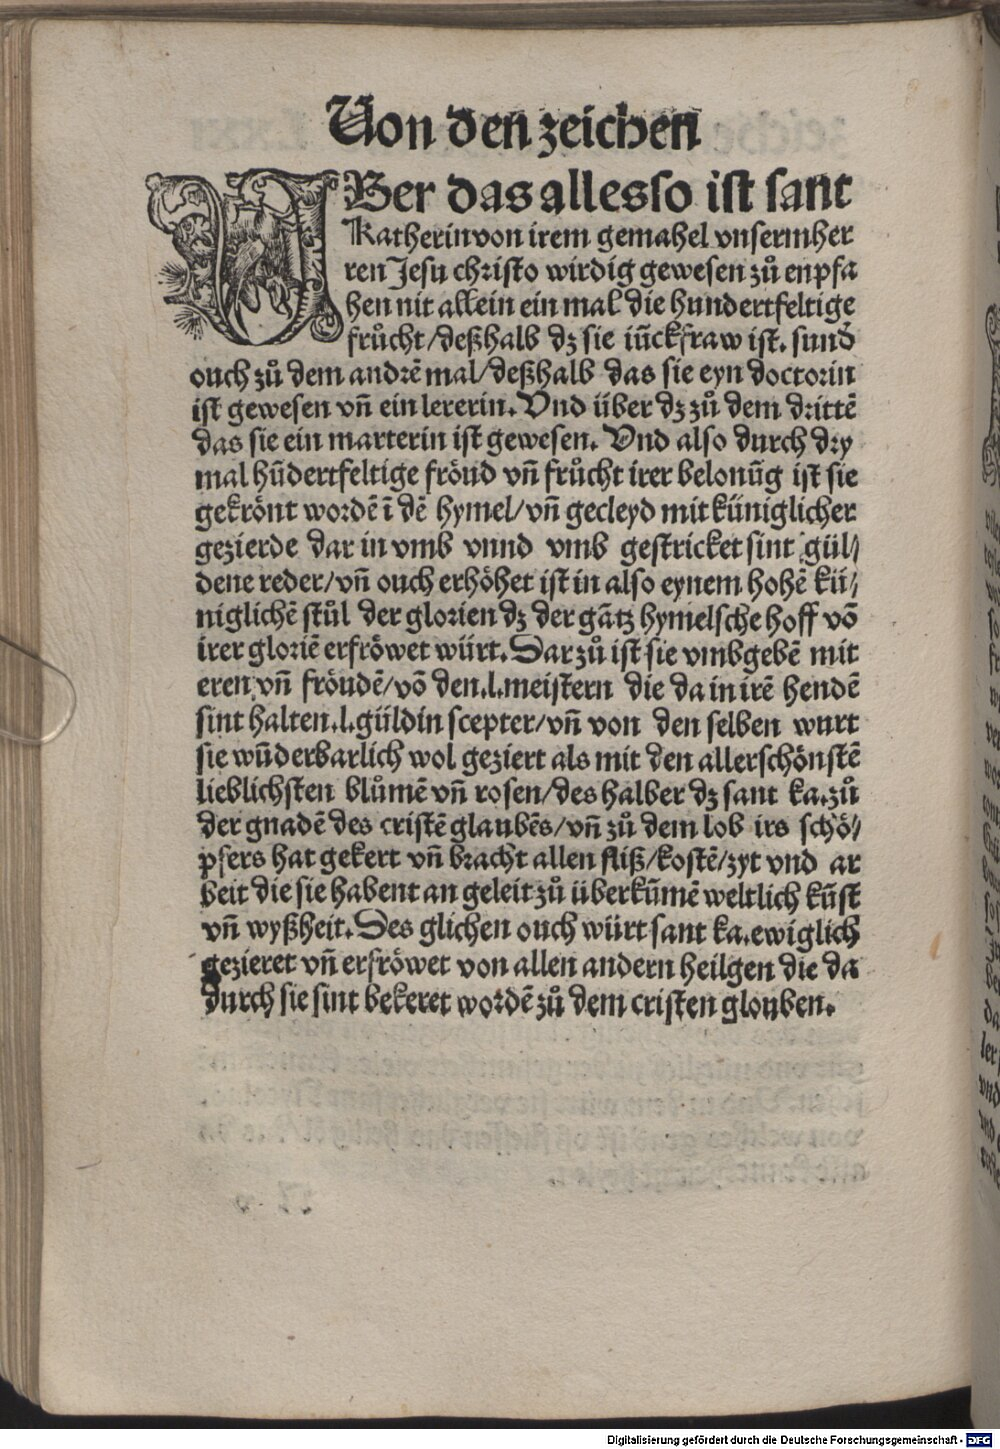 Von den zeichen
VBer das allesso ist sant
Katherin von irem gemahel vnserm her
ren Jesu christo wirdig gewesen zů enpfa
hen nit allein ein mal die hundertfeltige
frůcht/deßhalb dz sie iũckfraw ist. sund̃
ouch zů dem andrẽ mal/deßhalb das sie eyn doctorin
ist gewesen vñ ein lererin. Vnd über dz zů dem drittẽ
das sie ein marterin ist gewesen. Vnd also durch dry
mal hũdertfeltige fröud vñ frůcht irer belonũg ist sie
gekrönt wordẽ ĩ dẽ hymel/vñ gecleyd mit küniglicher
gezierde dar in vmb vnnd vmb gestricket sint gül/
dene reder/vñ ouch erhöhet ist in also eynem hohẽ kü/
niglichẽ stůl der glorien dz der gãtz hymelsche hoff võ
irer gloriẽ erfröwet würt. Dar zů ist sie vmbgebẽ mit
eren vñ fröudẽ/võ den .l. meistern die da in irẽ hendẽ
sint halten .l. güldin scepter/vñ von den selben wurt
sie wũderbarlich wol geziert als mit den allerschönstẽ
lieblichsten blůmẽ vñ rosen/des halber dz sant ka. zů
der gnadẽ des cristẽ glaubẽs/vñ zů dem lob irs schö/
pfers hat gekert vñ bracht allen fliß/kostẽ/zyt vnd ar
beit die sie habent an geleit zů überkũmẽ weltlich kũst
vñ wyßheit. Des glichen ouch würt sant ka. ewiglich
gezieret vñ erfröwet von allen andern heilgen die da
durch sie sint bekeret wordẽ zů dem cristen glouben.
Digitalisierung gefördert durch die Deutsche Forschungsgemeinschaft - DFG